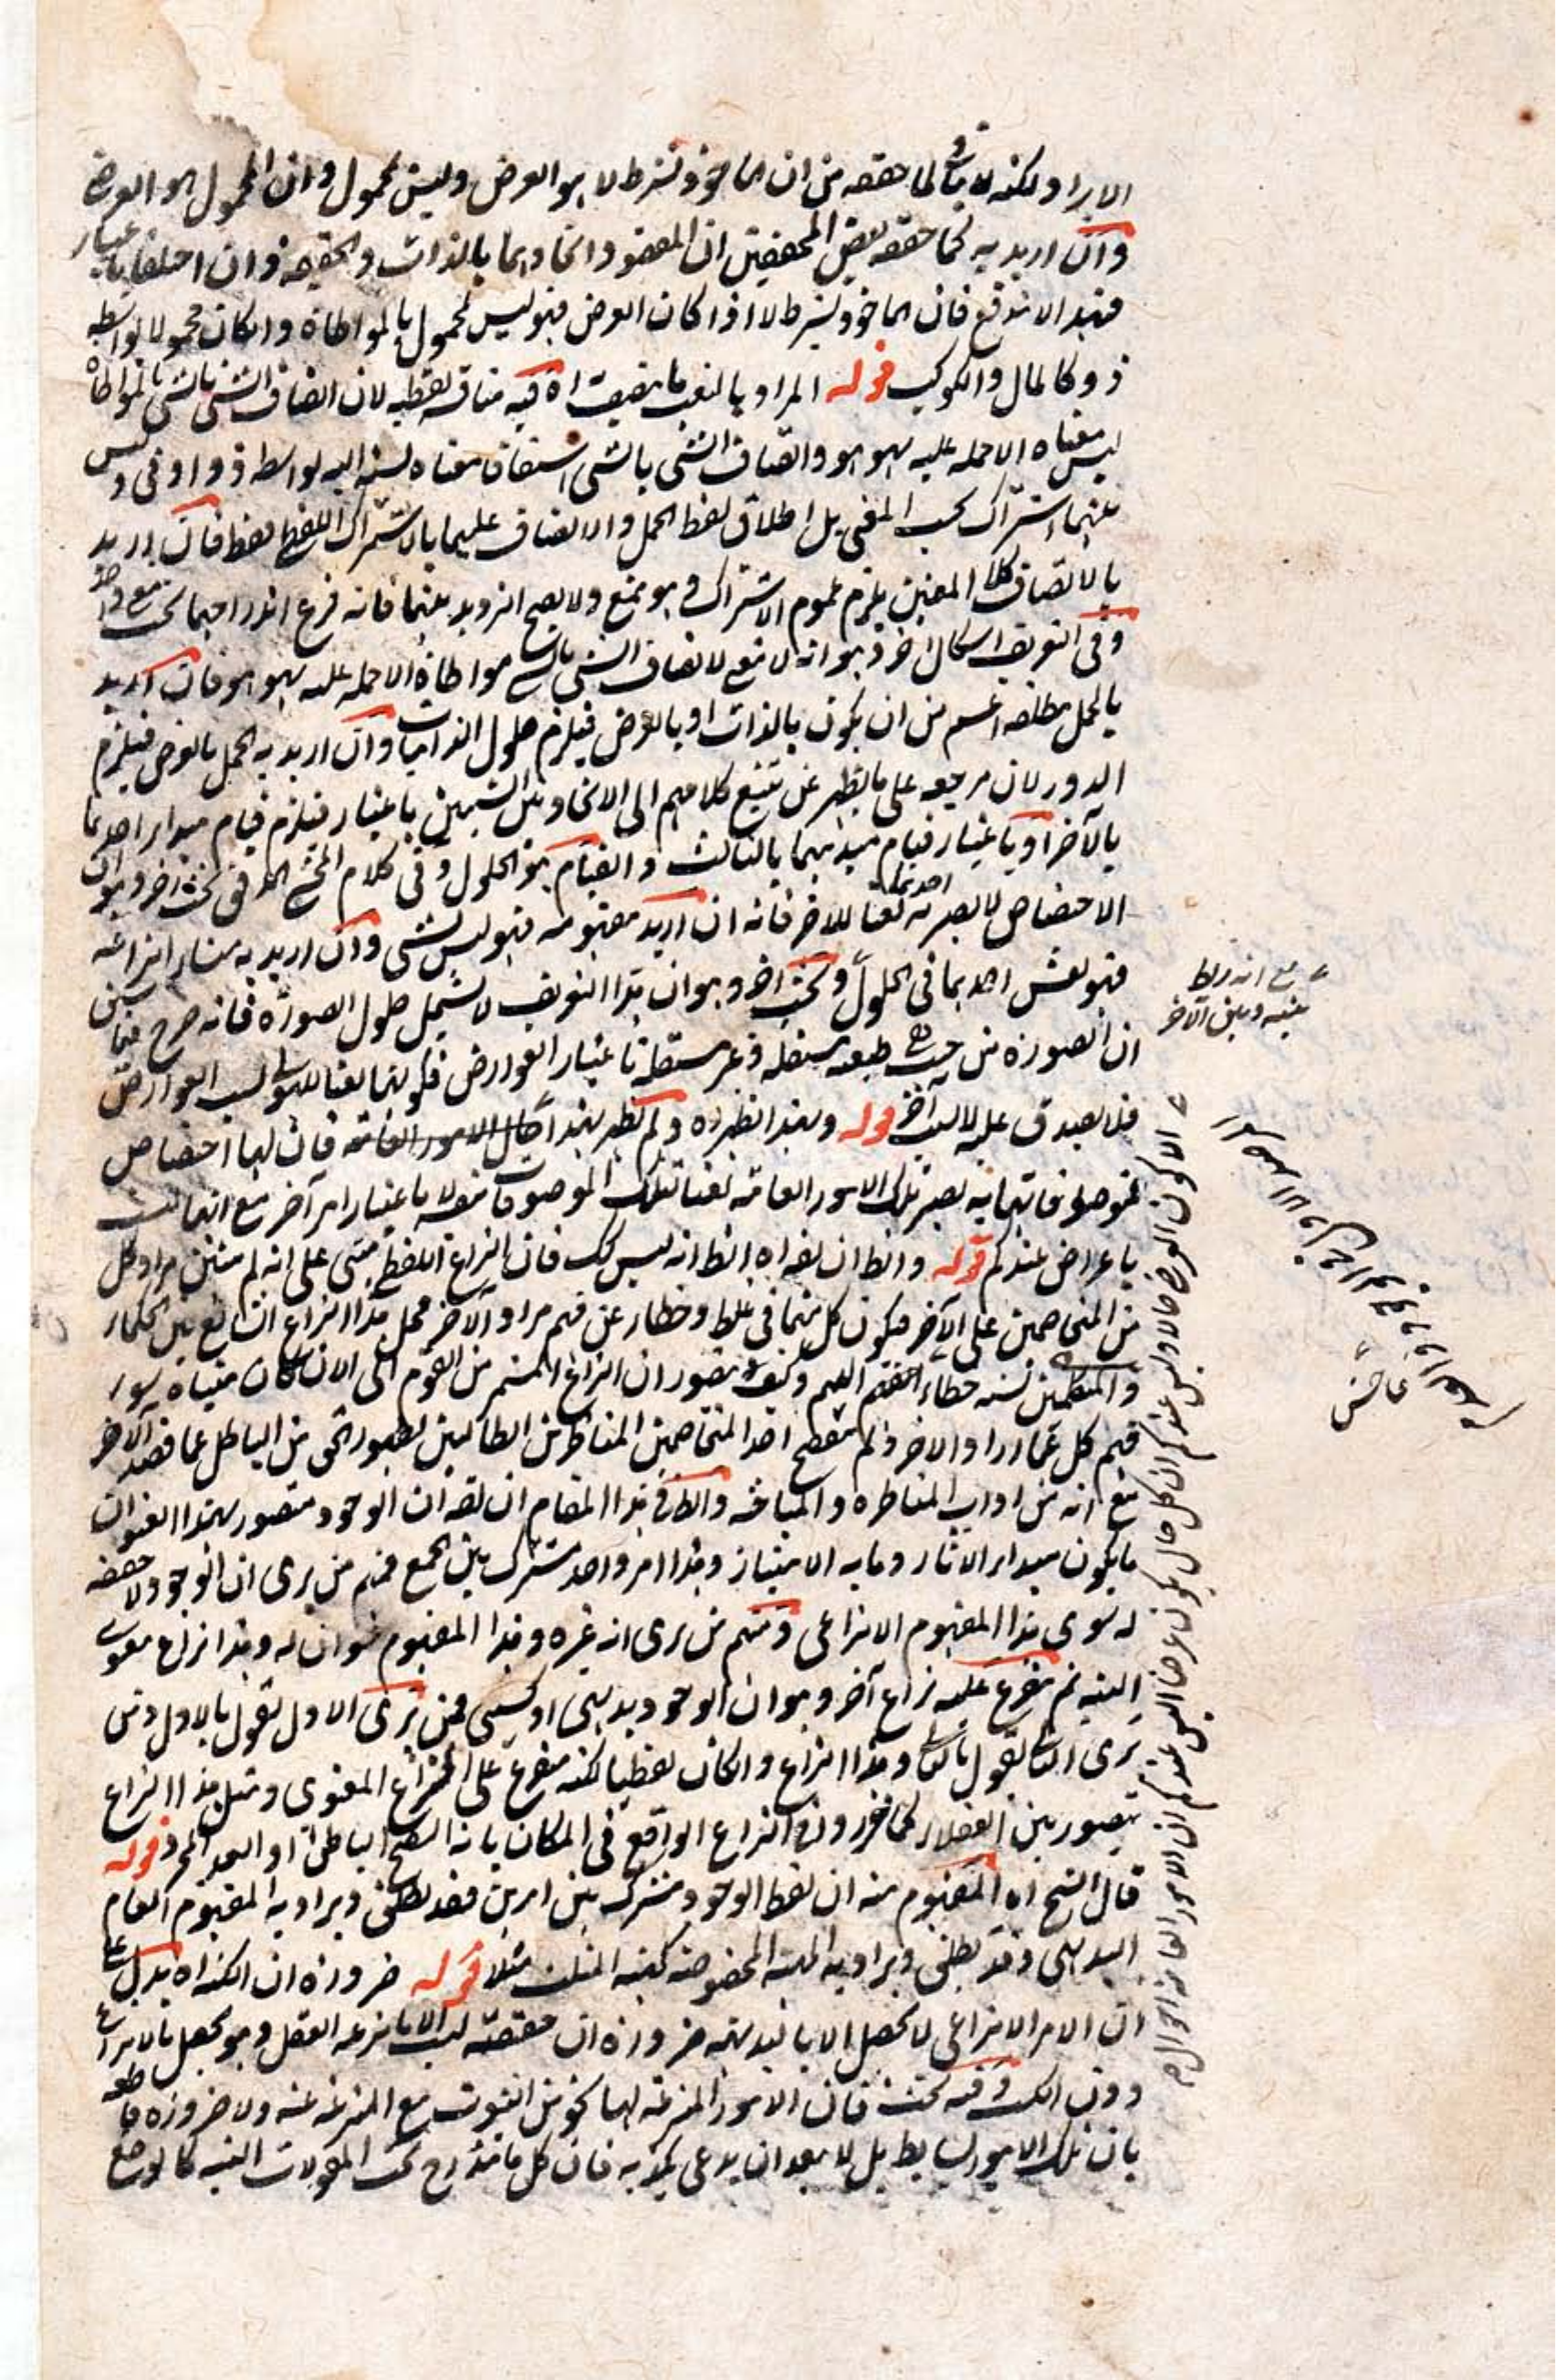 الايراد ولكنه لا ينافي لما حققه من ان الماخوذ بشرط لا هو العرض وليس بمحمول وان المحمول هو العرضي
وان اريد به كما حققه بعض المحققين ان واتحادهما بالذات والحقيقة وان اختلفا باعتبار
فهذا لا يندفع فان الماخوذ بشرط لا اذا كان العرض فهو ليس بمحمول بالمواطاة وان كان محمولا بواسطة
ذو كالمال والكوكب قوله المراد بالنعت ما يتصف اه فيه مناقشة لفظية لان اتصاف الشئ بالشئ بالمواطاة
ليس معناه الا حمله عليه بهو هو واتصاف الشئ بالشئ اشتقاقا معناه نسبته اليه بواسطة ذو او في وليس
بينهما اشتراك بحسب المعنى بل اطلاق لفظ الحمل والاتصاف عليهما بالاشتراك اللفظي فقط فان اريد
بالاتصاف كلا المعنيين يلزم عموم الاشتراك وهو ممتنع ولا يصح الترديد بينهما فانه فرع اندراجهما تحت معنى واحد
وفي التعريف اشكال اخر وهو انه لا معنى لاتصاف الشئ بالشئ مواطاة الا حمله عليه بهو هو فان اريد
بالحمل مطلقه اعم من ان يكون بالذات او بالعرض فيلزم حلول الذاتيات وان اريد به الحمل بالعرض فيلزم
الدور لان مرجعه على ما يظهر عن تتبع كلامهم الى الاتحاد بين الشيئين باعتبار فيلزم قيام مبدأ احدهما
بالآخر او باعتبار قيام مبدئهما بالثالث والقيام هو الحلول وفي كلام المحشي بحث اخر وهو ان
الاختصاص لا يصير به احدهما نعتا للاخر فانه ان اريد مفهومه فهو ليس بشئ وان اريد به منشأ انتزاعه
فهو نعت احدهما في الحلول وبحث اخر وهو ان هذا التعريف لا يشمل حلول الصورة فانه صرح فيما سبق
ان الصورة من حيث هي طبيعة مستقلة وغير مستقلة باعتبار العوارض فكونها نعتا للهيولى بسبب العوارض
فلا يصدق عليه لا بسبب آخر قوله وبهذا يظهر اه ولم يظهر بهذا حال الامور العامة فان لها اختصاص
بموصوفاتها به يصير تلك الامور العامة نعتا لتلك الموصوفات لا باعتبار امر آخر مع انها ليست
باعراض عندكم قوله والظ ان لفراه الظ انه ليس كك فان النزاع اللفظي مبني على انه لم يتبين مراد كل
من المتخاصمين على الآخر فيكون كل منهما في غلط وخطأ عن فهم مراد الآخر فحمل هذا النزاع الشائع بين الحكماء
والمتكلمين نسبة خطاء اليهم وكيف يتصور ان النزاع المستمر من القوم الى الان كان مبناه سوء
فهم كل عما اراد الاخر ولم يتفطن احد المتخاصمين المناظرين الطالبين لظهور الحق من الباطل عما قصده الآخر
مع انه من اداب المناظرة والمباحثة والظ في هذا المقام ان لقه ان الوجود متصور بهذا العنوان
ما يكون مبدأ الاثار وما به الامتياز وهذا امر واحد مشترك بين الجمع فمنهم من يرى ان الوجود لا حقيقة
له سوى هذا المفهوم الانتزاعي ومنهم من يرى انه غيره وهذا المفهوم عنوان له وهذا نزاع معنوي
البتة ثم يتفرع عليه نزاع آخر وهو ان الوجود بديهي او كسبي فمن يرى الاول يقول بالاول ومن
يرى الثاني يقول بالثاني وهذا النزاع وان كان لفظيا لكنه متفرع على النزاع المعنوي ومثل هذا النزاع
يتصور بين الفضلاء كما قرر في النزاع الواقع في المكان بانه السطح الباطن او البعد المجرد قوله
قال الشيخ اه المفهوم منه ان لفظ الوجود مشترك بين امرين فقد يطلق ويراد به المفهوم العام
البديهي وقد يطلق ويراد به الماهية المخصوصة كمهية المثلث مثلا قوله ضرورة ان الكنه اه يدل على
ان الامر الانتزاعي لا يحصل الا بالبديهة ضرورة ان حقيقته ليست الا ما ينتزعه العقل وهو يحصل بالانتزاع
دون الكسب وفيه بحث فان الامور المنتزعة لها نحو من الثبوت مع المنتزعة عنه ولا ضرورة قاطعة
بان تلك الامور بسائط بل لا يبعد ان يدعى بكذبه فان كل ما يندرج تحت المقولات النسبية كالوضع
مع انه ربط
بينه وبين الآخر
الا كون العرض حالا وليس عندكم ان كل حال يكون عرضا اليس عندكم ان الامور العامة احوال